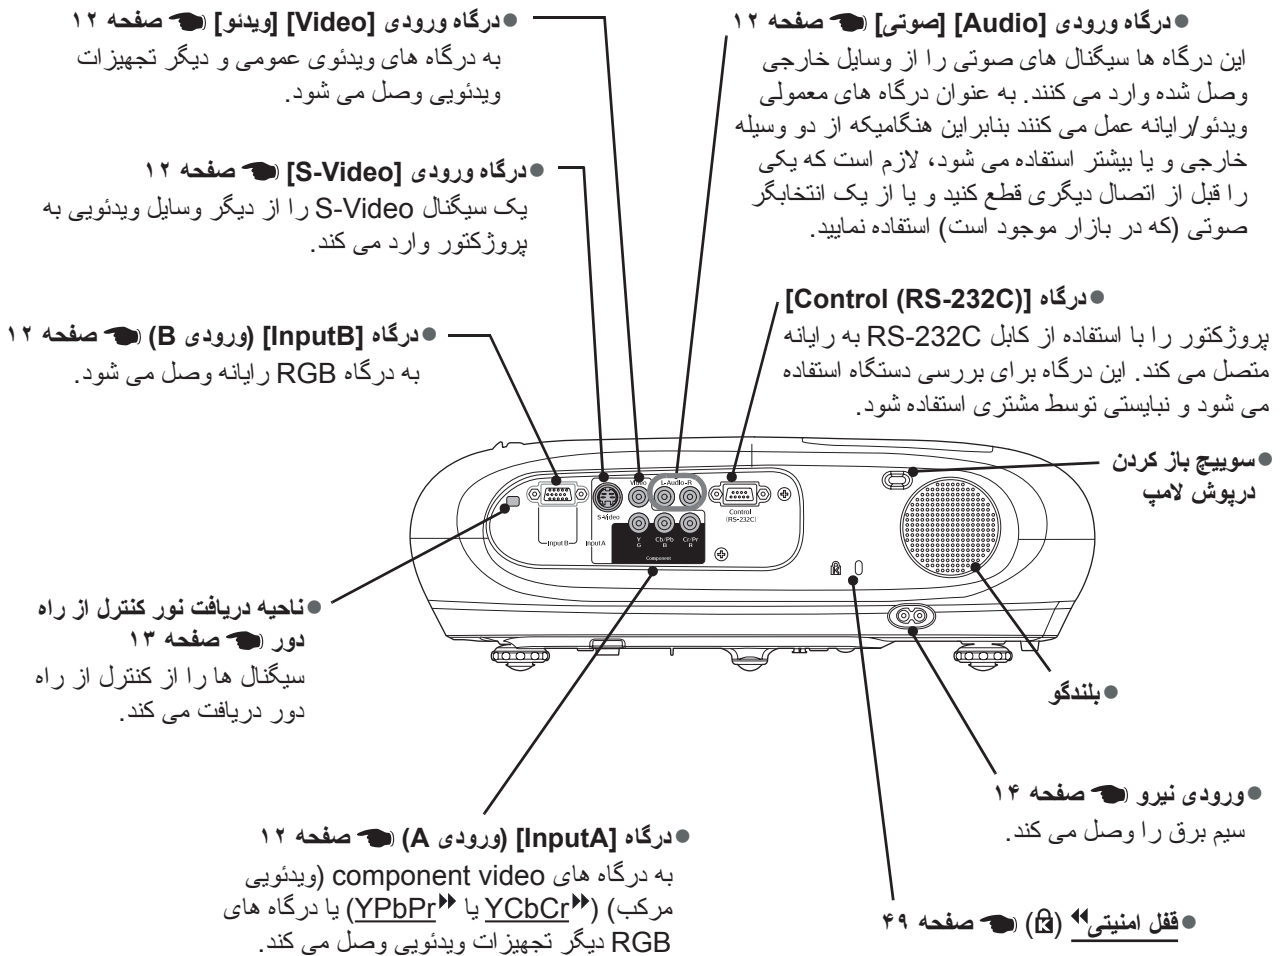 ●درگاه ورودی [Audio] [صوتی] ☚ صفحه ۱۲
این درگاه ها سیگنال های صوتی را از وسایل خارجی
وصل شده وارد می کنند. به عنوان درگاه های معمولی
ویدئو/رایانه عمل می کنند بنابراین هنگامیکه از دو وسیله
خارجی و یا بیشتر استفاده می شود، لازم است که یکی
را قبل از اتصال دیگری قطع کنید و یا از یک انتخابگر
صوتی (که در بازار موجود است) استفاده نمایید.
●درگاه [Control (RS-232C)]
پروژکتور را با استفاده از کابل RS-232C به رایانه
متصل می کند. این درگاه برای بررسی دستگاه استفاده
می شود و نبایستی توسط مشتری استفاده شود.
●سوییچ باز کردن
درپوش لامپ
●بلندگو
●ورودی نیرو ☚ صفحه ۱۴
سیم برق را وصل می کند.
●قفل امنیتی (K) ☚ صفحه ۴۹
●درگاه ورودی [Video] [ویدئو] ☚ صفحه ۱۲
به درگاه های ویدئوی عمومی و دیگر تجهیزات
ویدئویی وصل می شود.
●درگاه ورودی [S-Video] ☚ صفحه ۱۲
یک سیگنال S-Video را از دیگر وسایل ویدئویی به
پروژکتور وارد می کند.
●درگاه [InputB] (ورودی B) ☚ صفحه ۱۲
به درگاه RGB رایانه وصل می شود.
Video
L-Audio-R
S-Video
Control
(RS-232C)
InputB
InputA
Y
G
Cb/Pb
B
Cr/Pr
R
Component
K
●ناحیه دریافت نور کنترل از راه
دور ☚ صفحه ۱۳
سیگنال ها را از کنترل از راه
دور دریافت می کند.
●درگاه [InputA] (ورودی A) ☚ صفحه ۱۲
به درگاه های component video (ویدئویی
مرکب) (YCbCr یا YPbPr) یا درگاه های
RGB دیگر تجهیزات ویدئویی وصل می کند.